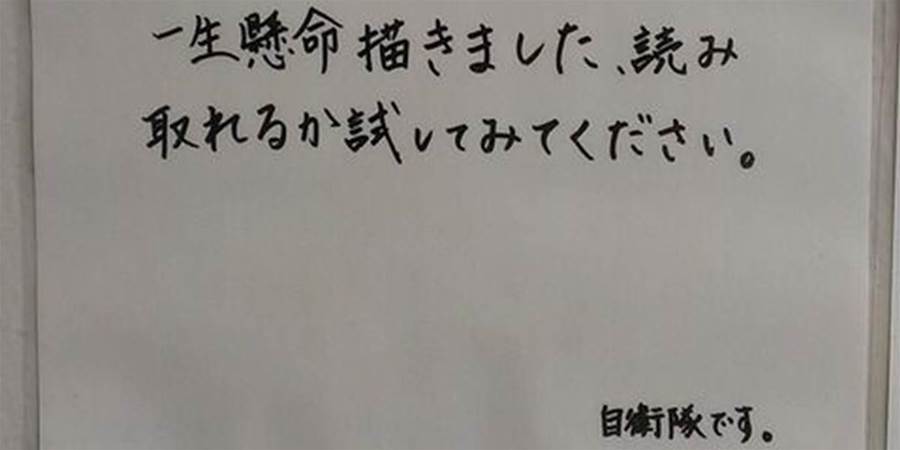 一生懸命描きました、読み
取れるか試してみてください。
自衛隊です。